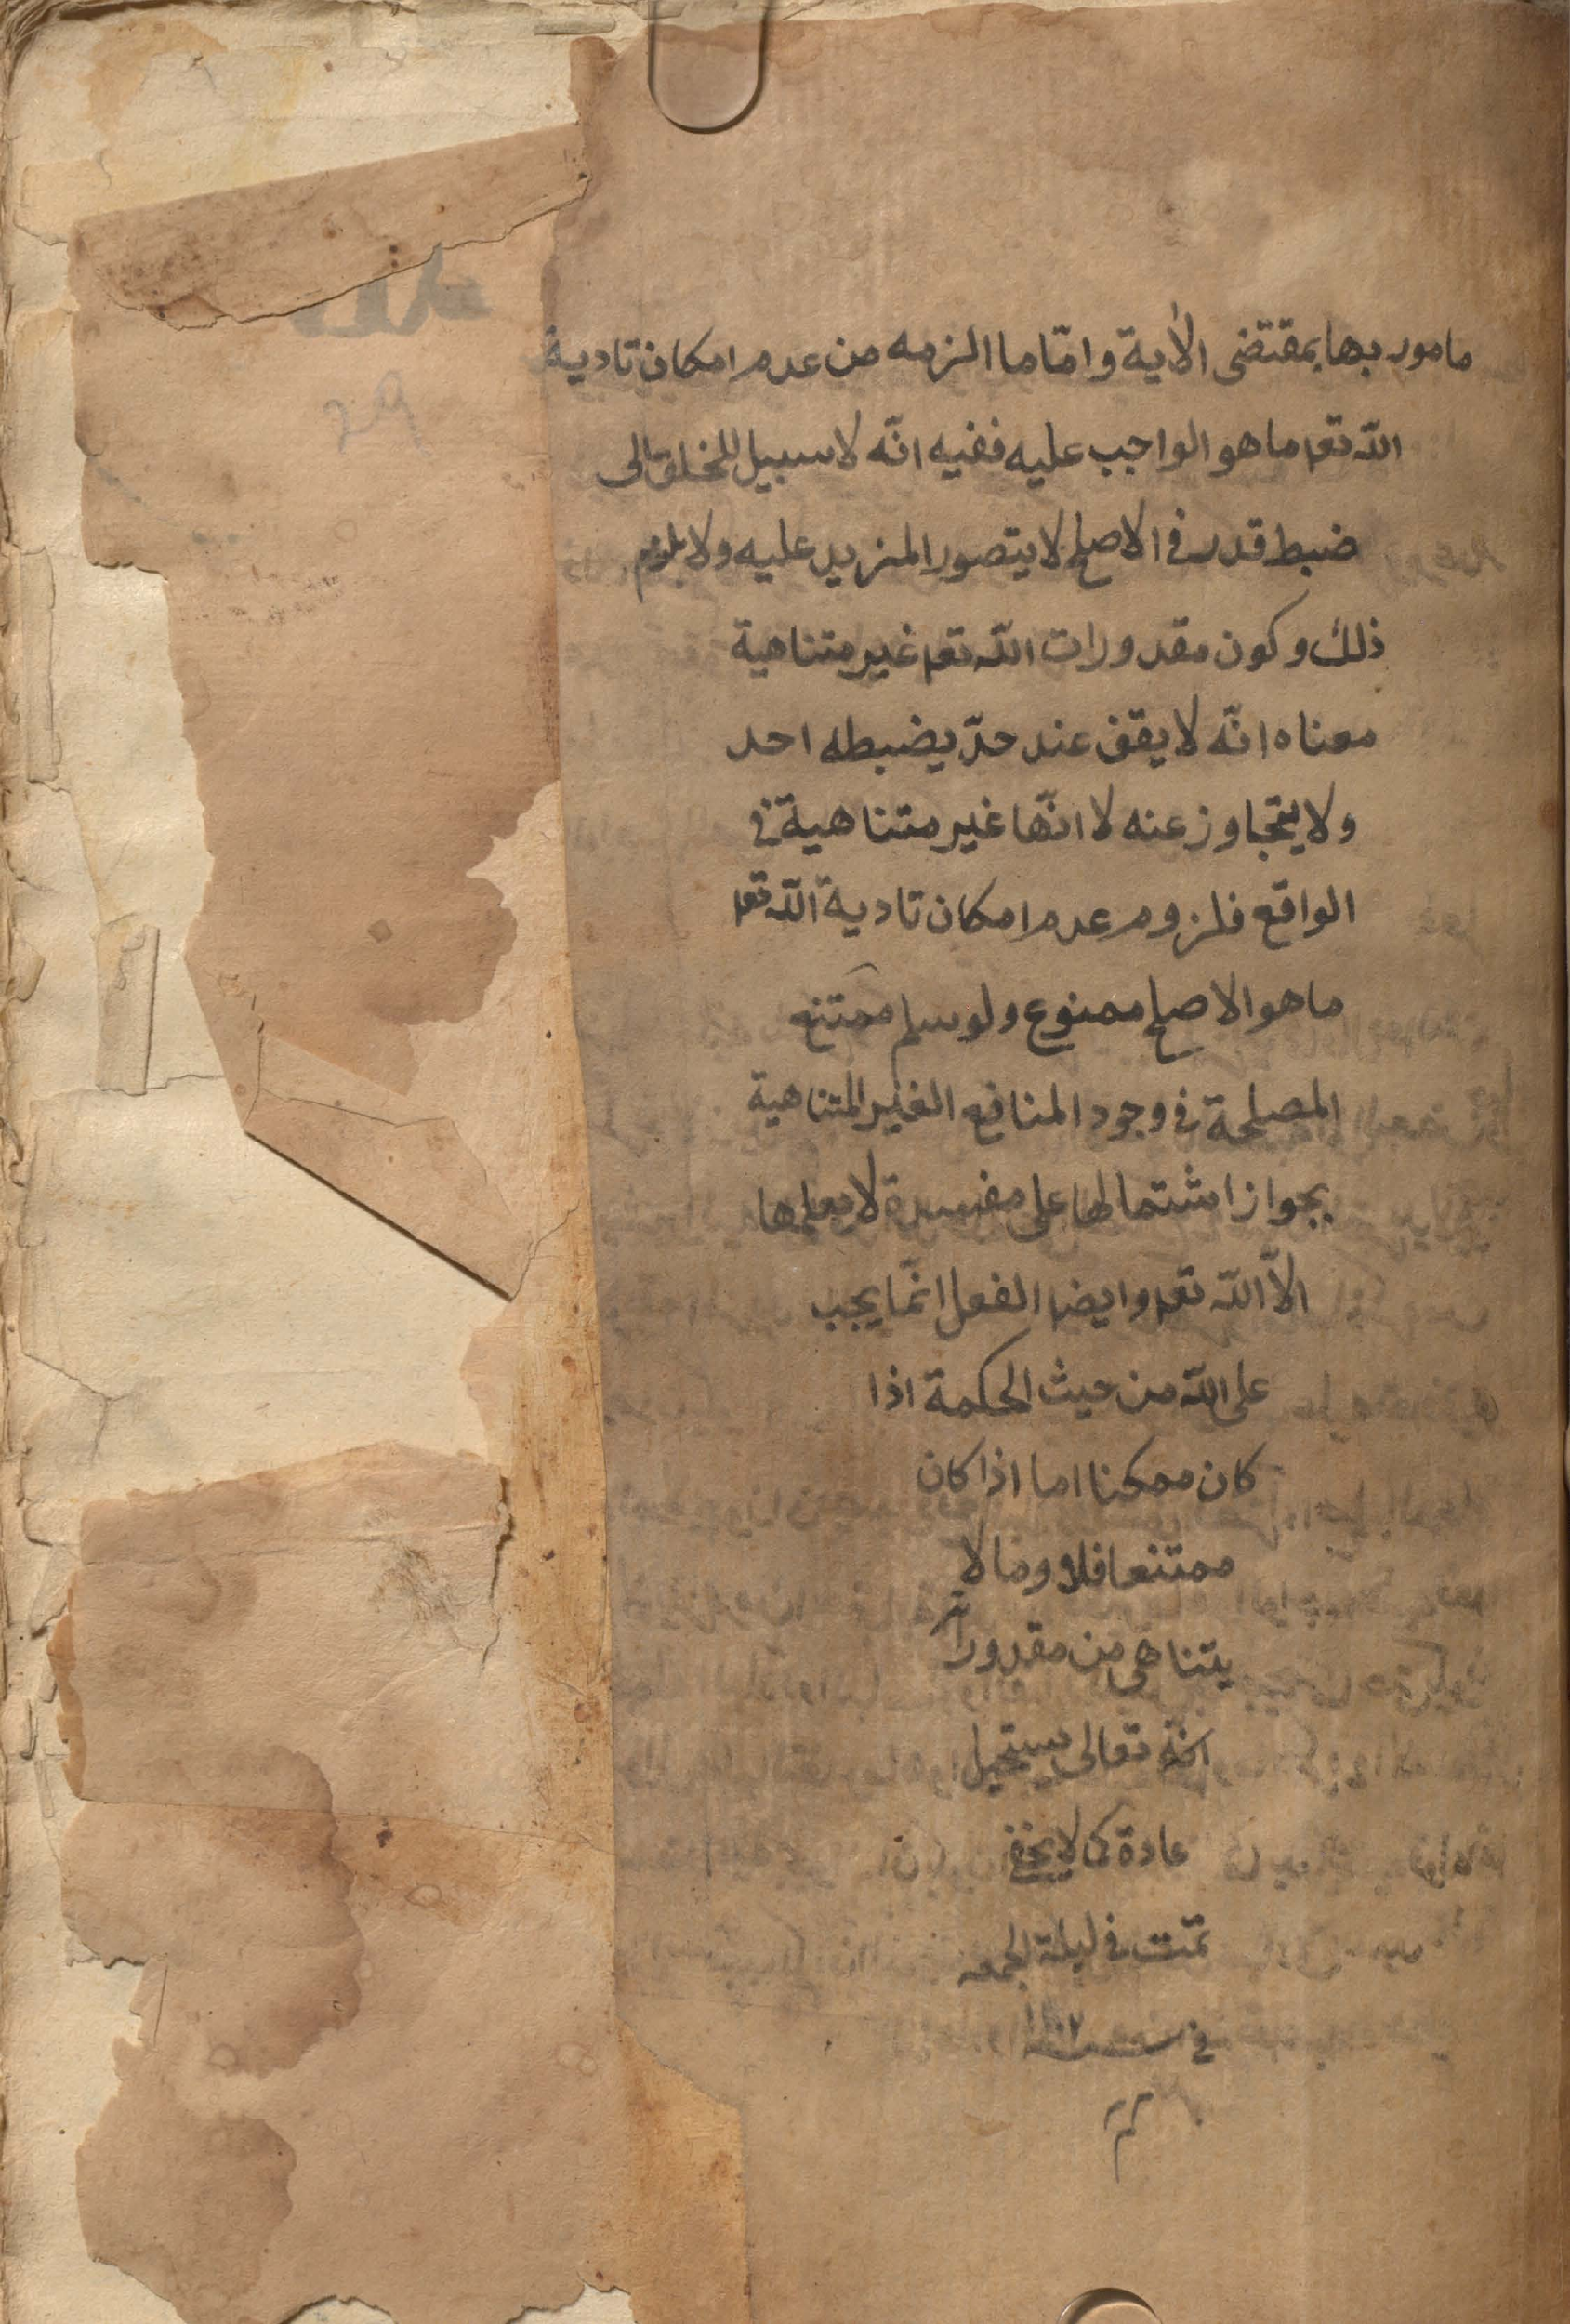 مامور بها بمقتضى الاية وامّا ما الزمه من عدم امكان تادية
اللّه تعا ما هو الواجب عليه ففيه انّه لا سبيل للخلق الى
ضبط قدر في الاصلح لا يتصور المزيد عليه ولا يلزم
ذلك وكون مقدورات اللّه تعا غير متناهية
معناه انّه لا يقف عند حدّ يضبطه احد
ولا يتجاوز عنه لا انّها غير متناهية في
الواقع فلزوم عدم امكان تادية اللّه تعا
ما هو الاصلح ممنوع ولو سلم ممتنع
المصلحة في وجود المنافع الغير المتناهية
بجواز اشتمالها على مفسدة لا يعلمها
الاّ اللّه تعا وايضا الفعل انّما يجب
على اللّه من حيث الحكمة اذا
كان ممكنا اما اذا كان
ممتنعا فلا وما لا
يتناهى من مقدوراته
تعالى يستحيل
عادة كما لا يخفى
تمّت في ليلة الجمعه
في سنه
تم
29